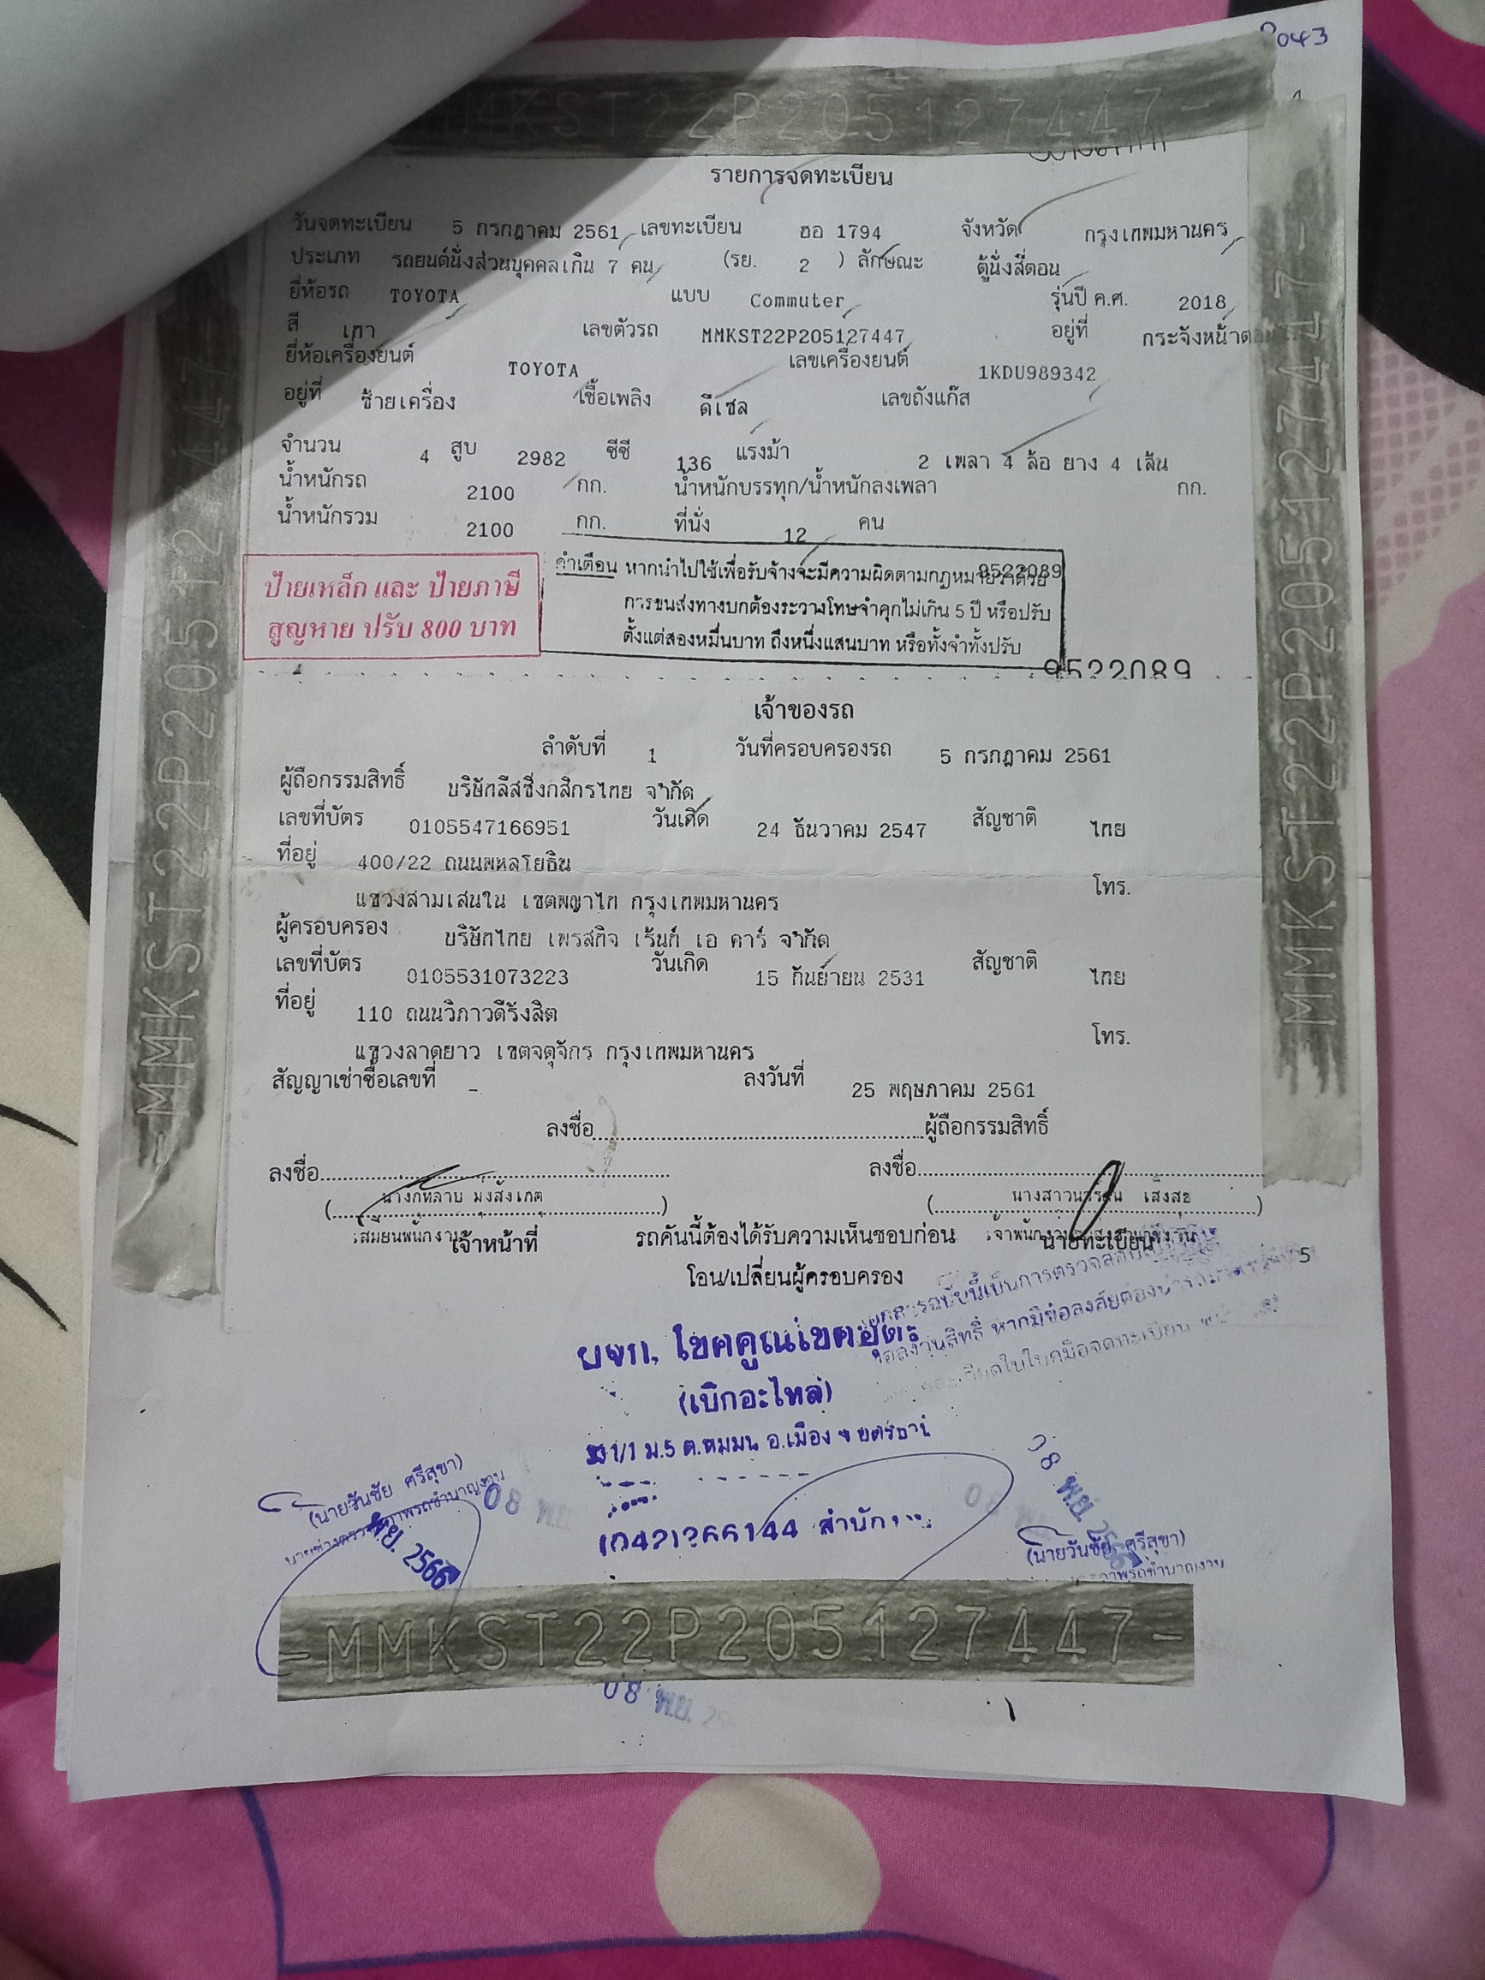 2043
MMKST22P205127447-
รายการจดทะเบียน
วันจดทะเบียน 5 กรกฎาคม 2561 เลขทะเบียน ฮอ 1794 จังหวัด กรุงเทพมหานคร
ประเภท รถยนต์นั่งส่วนบุคคลเกิน 7 คน (รย. 2 ) ลักษณะ ตู้นั่งสี่ตอน
ยี่ห้อรถ TOYOTA แบบ Commuter รุ่นปี ค.ศ. 2018
สี เทา เลขตัวรถ MMKST22P205127447 อยู่ที่ กระจังหน้า
ยี่ห้อเครื่องยนต์ TOYOTA เลขเครื่องยนต์ 1KDU989342
อยู่ที่ ซ้ายเครื่อง เชื้อเพลิง ดีเซล เลขถังแก๊ส
จำนวน 4 สูบ 2982 ซีซี 136 แรงม้า 2 เพลา 4 ล้อ ยาง 4 เส้น
น้ำหนักรถ 2100 กก. น้ำหนักบรรทุก/น้ำหนักลงเพลา กก.
น้ำหนักรวม 2100 กก. ที่นั่ง 12 คน
ป้ายเหล็ก และ ป้ายภาษี
สูญหาย ปรับ 800 บาท
คำเตือน หากนำไปใช้เพื่อรับจ้างจะมีความผิดตามกฎหมายว่าด้วย 9522089
การขนส่งทางบกต้องระวางโทษจำคุกไม่เกิน 5 ปี หรือปรับ
ตั้งแต่สองหมื่นบาท ถึงหนึ่งแสนบาท หรือทั้งจำทั้งปรับ
9522089
เจ้าของรถ
ลำดับที่ 1 วันที่ครอบครองรถ 5 กรกฎาคม 2561
ผู้ถือกรรมสิทธิ์ บริษัทลีสซิ่งกสิกรไทย จำกัด
เลขที่บัตร 0105547166951 วันเกิด 24 ธันวาคม 2547 สัญชาติ ไทย
ที่อยู่ 400/22 ถนนพหลโยธิน
โทร.
แขวงสามเสนใน เขตพญาไท กรุงเทพมหานคร
ผู้ครอบครอง บริษัทไทย เพรสทิจ เร้นท์ เอ คาร์ จำกัด
เลขที่บัตร 0105531073223 วันเกิด 15 กันยายน 2531 สัญชาติ ไทย
ที่อยู่ 110 ถนนวิภาวดีรังสิต
โทร.
แขวงลาดยาว เขตจตุจักร กรุงเทพมหานคร
สัญญาเช่าซื้อเลขที่ - ลงวันที่ 25 พฤษภาคม 2561
ลงชื่อ ผู้ถือกรรมสิทธิ์
ลงชื่อ ลงชื่อ
เจ้าหน้าที่ รถคันนี้ต้องได้รับความเห็นชอบก่อน นายทะเบียน
โอน/เปลี่ยนผู้ครอบครอง 5
(เบิกอะไหล่)
(นายวันชัย ศรีสุขา)
พ.ย. 2566
08 พ.ย.
08 พ.ย.
(นายวันชัย ศรีสุขา)
-MMKST22P205127447-
08 พ.ย.
-MMKST22P205127447
-MMKST22P205127447-